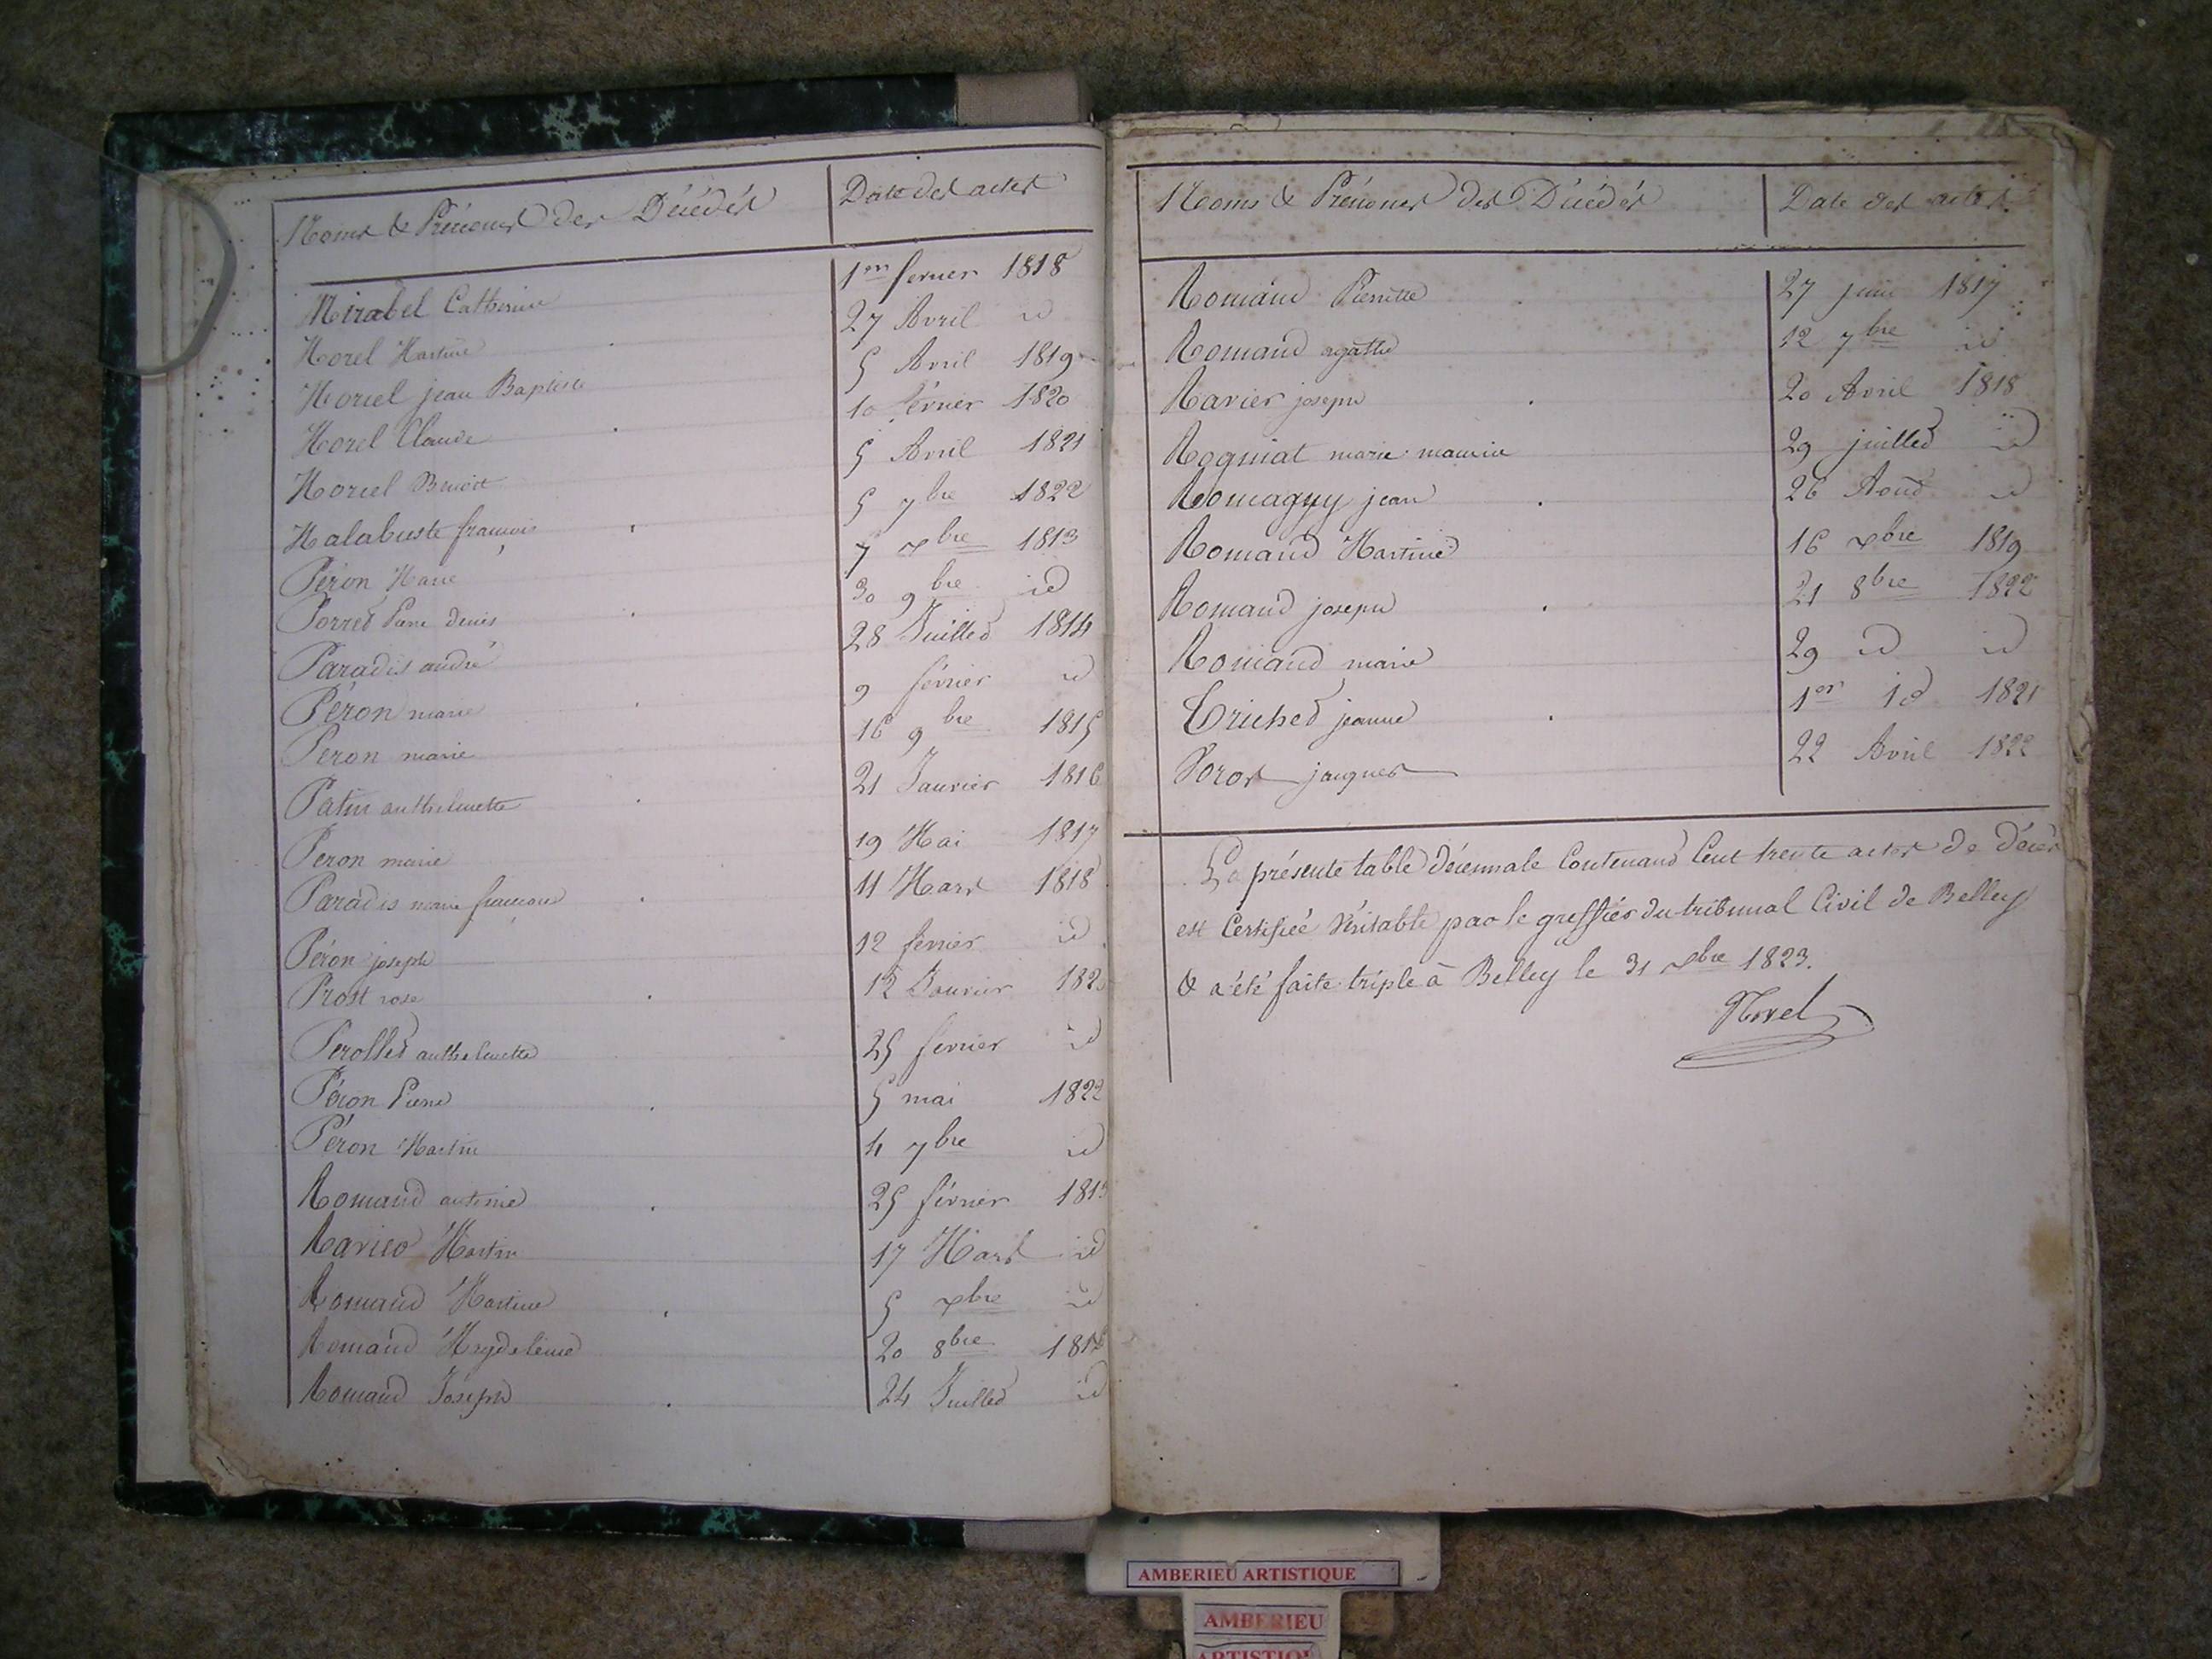 Noms & Prénoms des Décédés
Date des actes
Mirabel Catherine 1er fevrier 1818
Morel Martine 27 Avril id
Moriel jean Baptiste 5 Avril 1819
Morel Claude 10 février 1820
Moriel Benoit 5 Avril 1821
Malabuste françois 5 7bre 1822
Péron Marie 7 xbre 1813
Porret Pierre denis 30 9bre id
Paradis andré 28 Juillet 1814
Péron marie 9 février id
Peron marie 16 9bre 1815
Patin anthelmette 21 Janvier 1816
Peron marie 19 Mai 1817
Paradis marie françoise 11 Mars 1818
Péron joseph 12 fevrier id
Prost rose 12 Janvier
Perollet anthelmette 25 fevrier id
Péron Pierre 5 mai 1822
Péron Martin 4 7bre id
Romand antoine 25 février
Ravier Martin 17 Mars id
Romand Martine 5 xbre id
Romand Magdeleine 20 8bre
Romand Joseph 24 Juillet id
Noms & Prénoms des Décédés
Date des actes
Romand Pierrette 27 juin 1817
Romand agathe 12 7bre id
Ravier joseph 20 Avril 1818
Rogniat marie maurice 29 juillet id
Romagny jean 26 Aout id
Romand Martine 16 xbre 1819
Romand joseph 21 8bre 1822
Romand marie 29 id id
Trichet jeanne 1er id 1821
jacques 22 Avril 1822
La présente table décennale Contenant Cent trente actes de décès
est Certifiée Véritable par le greffier du tribunal Civil de Belley
& a été faite triple à Belley le 31 xbre 1823.
Morel
AMBERIEU ARTISTIQUE
AMBERIEU
ARTISTIQUE